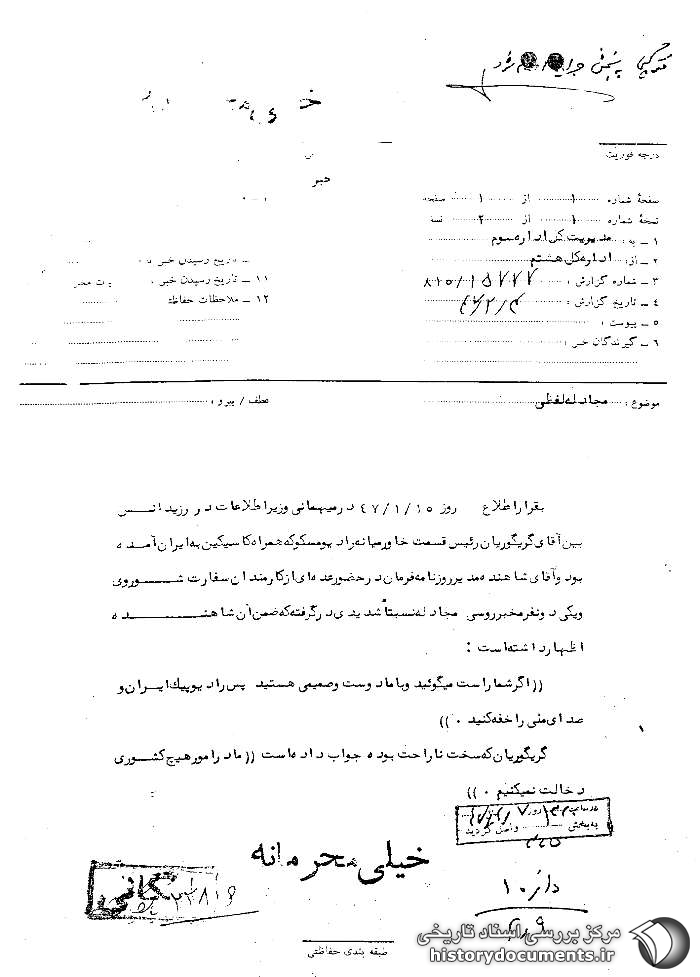 درجه فوریت
خبر
صفحهٔ شماره ۱ از ۱ صفحه
نسخهٔ شماره ۱ از ۲ نسخه
۱ ـ به: مدیریت کل اداره سوم
۲ ـ از: اداره کل هشتم
۳ ـ شماره گزارش: ۸۱۵/۱۵۷۷۷
۴ ـ تاریخ گزارش:
۵ ـ پیوست:
۶ ـ گیرندگان خبر:
ـ تاریخ رسیدن خبر به
۱۱ ـ تاریخ رسیدن خبر
۱۲ ـ ملاحظات حفاظتی
موضوع: مجادله لفظی
عطف / پیرو:
بقرار اطلاع روز ۴۷/۱/۱۵ در میهمانی وزیر اطلاعات در رزیدانس
بین آقای گریگوریان رئیس قسمت خاورمیانه رادیو مسکو که همراه کاسیگین به ایران آمده
بود و آقای شاهنده مدیر روزنامه فرمان در حضور عده ای از کارمندان سفارت شوروی
و یکی دو نفر مخبر روسی مجادله نسبتاً شدیدی در گرفته که ضمن آن شاهنده
اظهار داشته است :
((اگر شما راست میگوئید و با ما دوست و صمیمی هستید پس رادیو پیک ایران و
صدای ملی را خفه کنید . ))
گریگوریان که سخت ناراحت بوده جواب داده است (( ما در امور هیچ کشوری
دخالت نمیکنیم . ))
به بخش واصل گردید
خیلی محرمانه
بایگانی
دائره ۱۰
طبقه بندی حفاظتی
مرکز بررسی اسناد تاریخی
historydocuments.ir